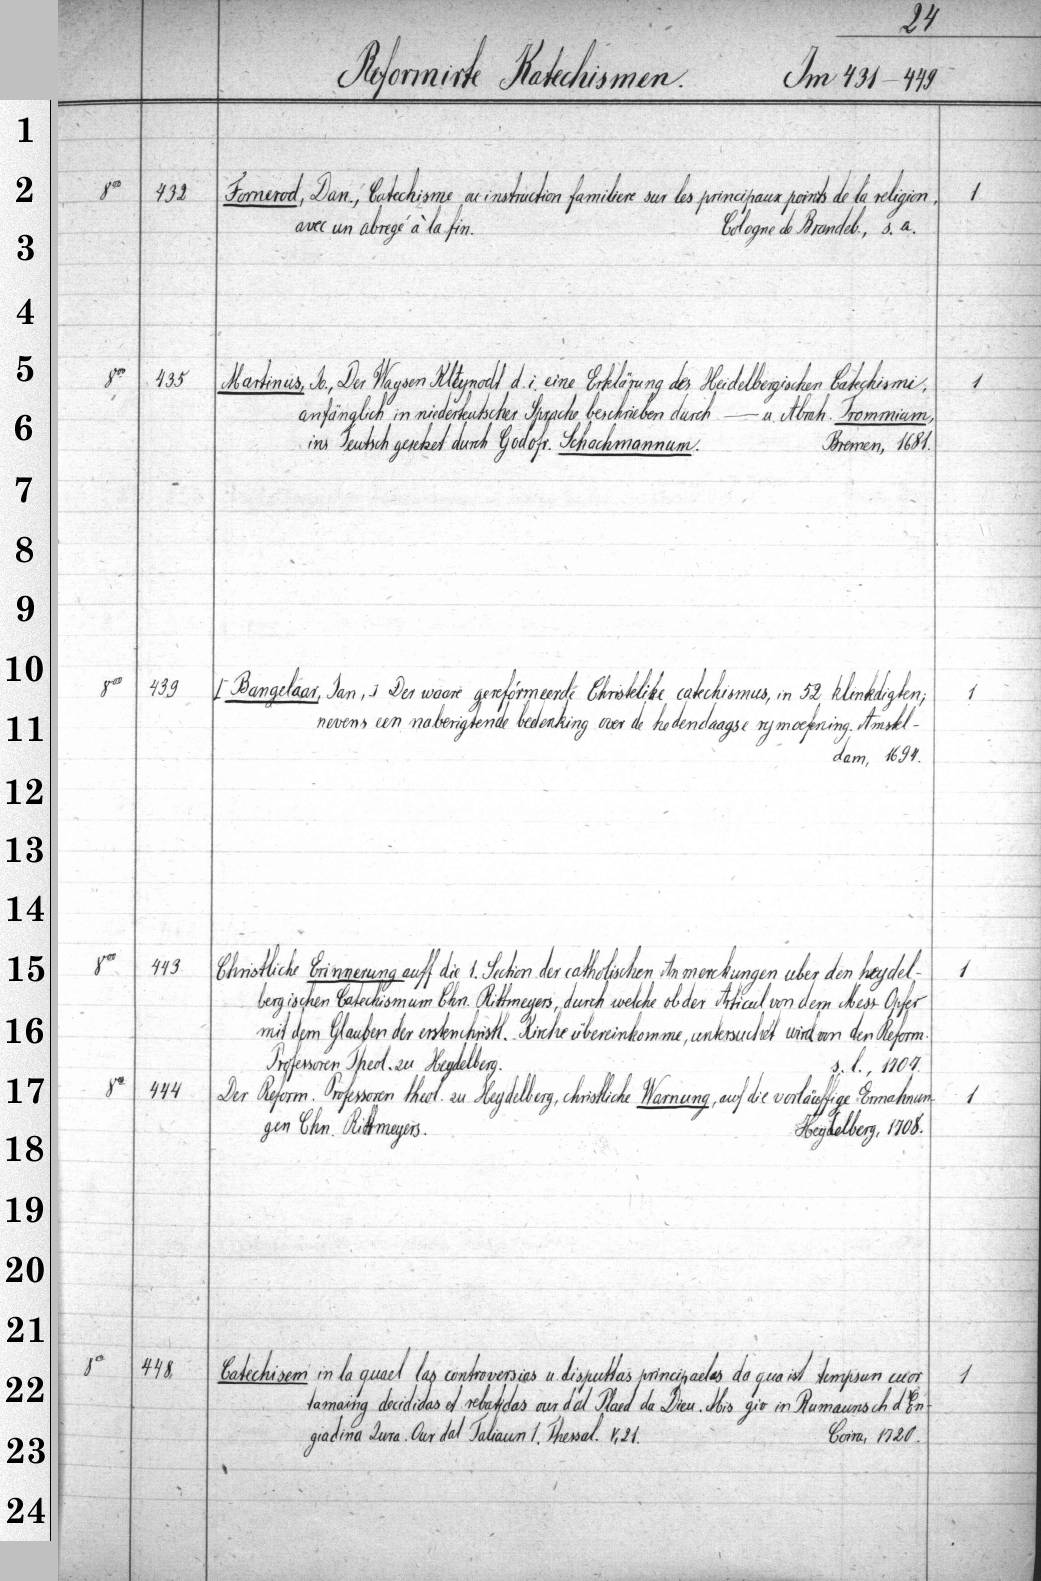 24
Reformirte Katechismen. Im 431-449
1
2
3
4
5
6
7
8
9
10
11
12
13
14
15
16
17
18
19
20
21
22
23
24
8vo 432 Fornerod, Dan., Catechisme ou instruction familiere sur les principaux points de la religion, 1
avec un abregé à la fin. Cologne de Brandeb., s. a.
8vo 435 Martinus, Jo., Der Waysen Kleynodt d. i. eine Erklärung des Heidelbergischen Catechismi, 1
anfänglich in niederteutscher Sprache beschrieben durch — u. Abrah. Trommium,
ins Teutsch gesetzet durch Godofr. Schachmannum. Bremen, 1681.
8vo 439 [Bangelaar, Jan,] Der waare gereformeerde Christelike catechismus, in 52 klinkdigten; 1
nevens een naberigtende bedenking over de hedendaagse rymoefening. Amstel-
dam, 1694.
8vo 443 Christliche Erinnerung auff die 1. Section der catholischen Anmerckungen uber den heydel- 1
bergischen Catechismum Chn. Rittmeyers, durch welche ob der Articul von dem Mess-Opfer
mit dem Glauben der ersten christl. Kirche übereinkomme, untersuchet wird von den Reform.
Professoren Theol. zu Heydelberg. s. l., 1707.
8vo 444 Der Reform. Professoren theol. zu Heydelberg, christliche Warnung, auf die vorläuffige Ermahnun- 1
gen Chn. Rittmeyers. Heydelberg, 1708.
8vo 448 Catechisem in la quael las controversias u disputtas principaelas da quaist tempsun cuor 1
tamaing decididas et rebattidas our dal Plaed da Dieu. Mis gio in Rumaunsch d'En-
giadina Zura. Our dal Taliaun 1. Thessal. V, 21. Coira, 1720.